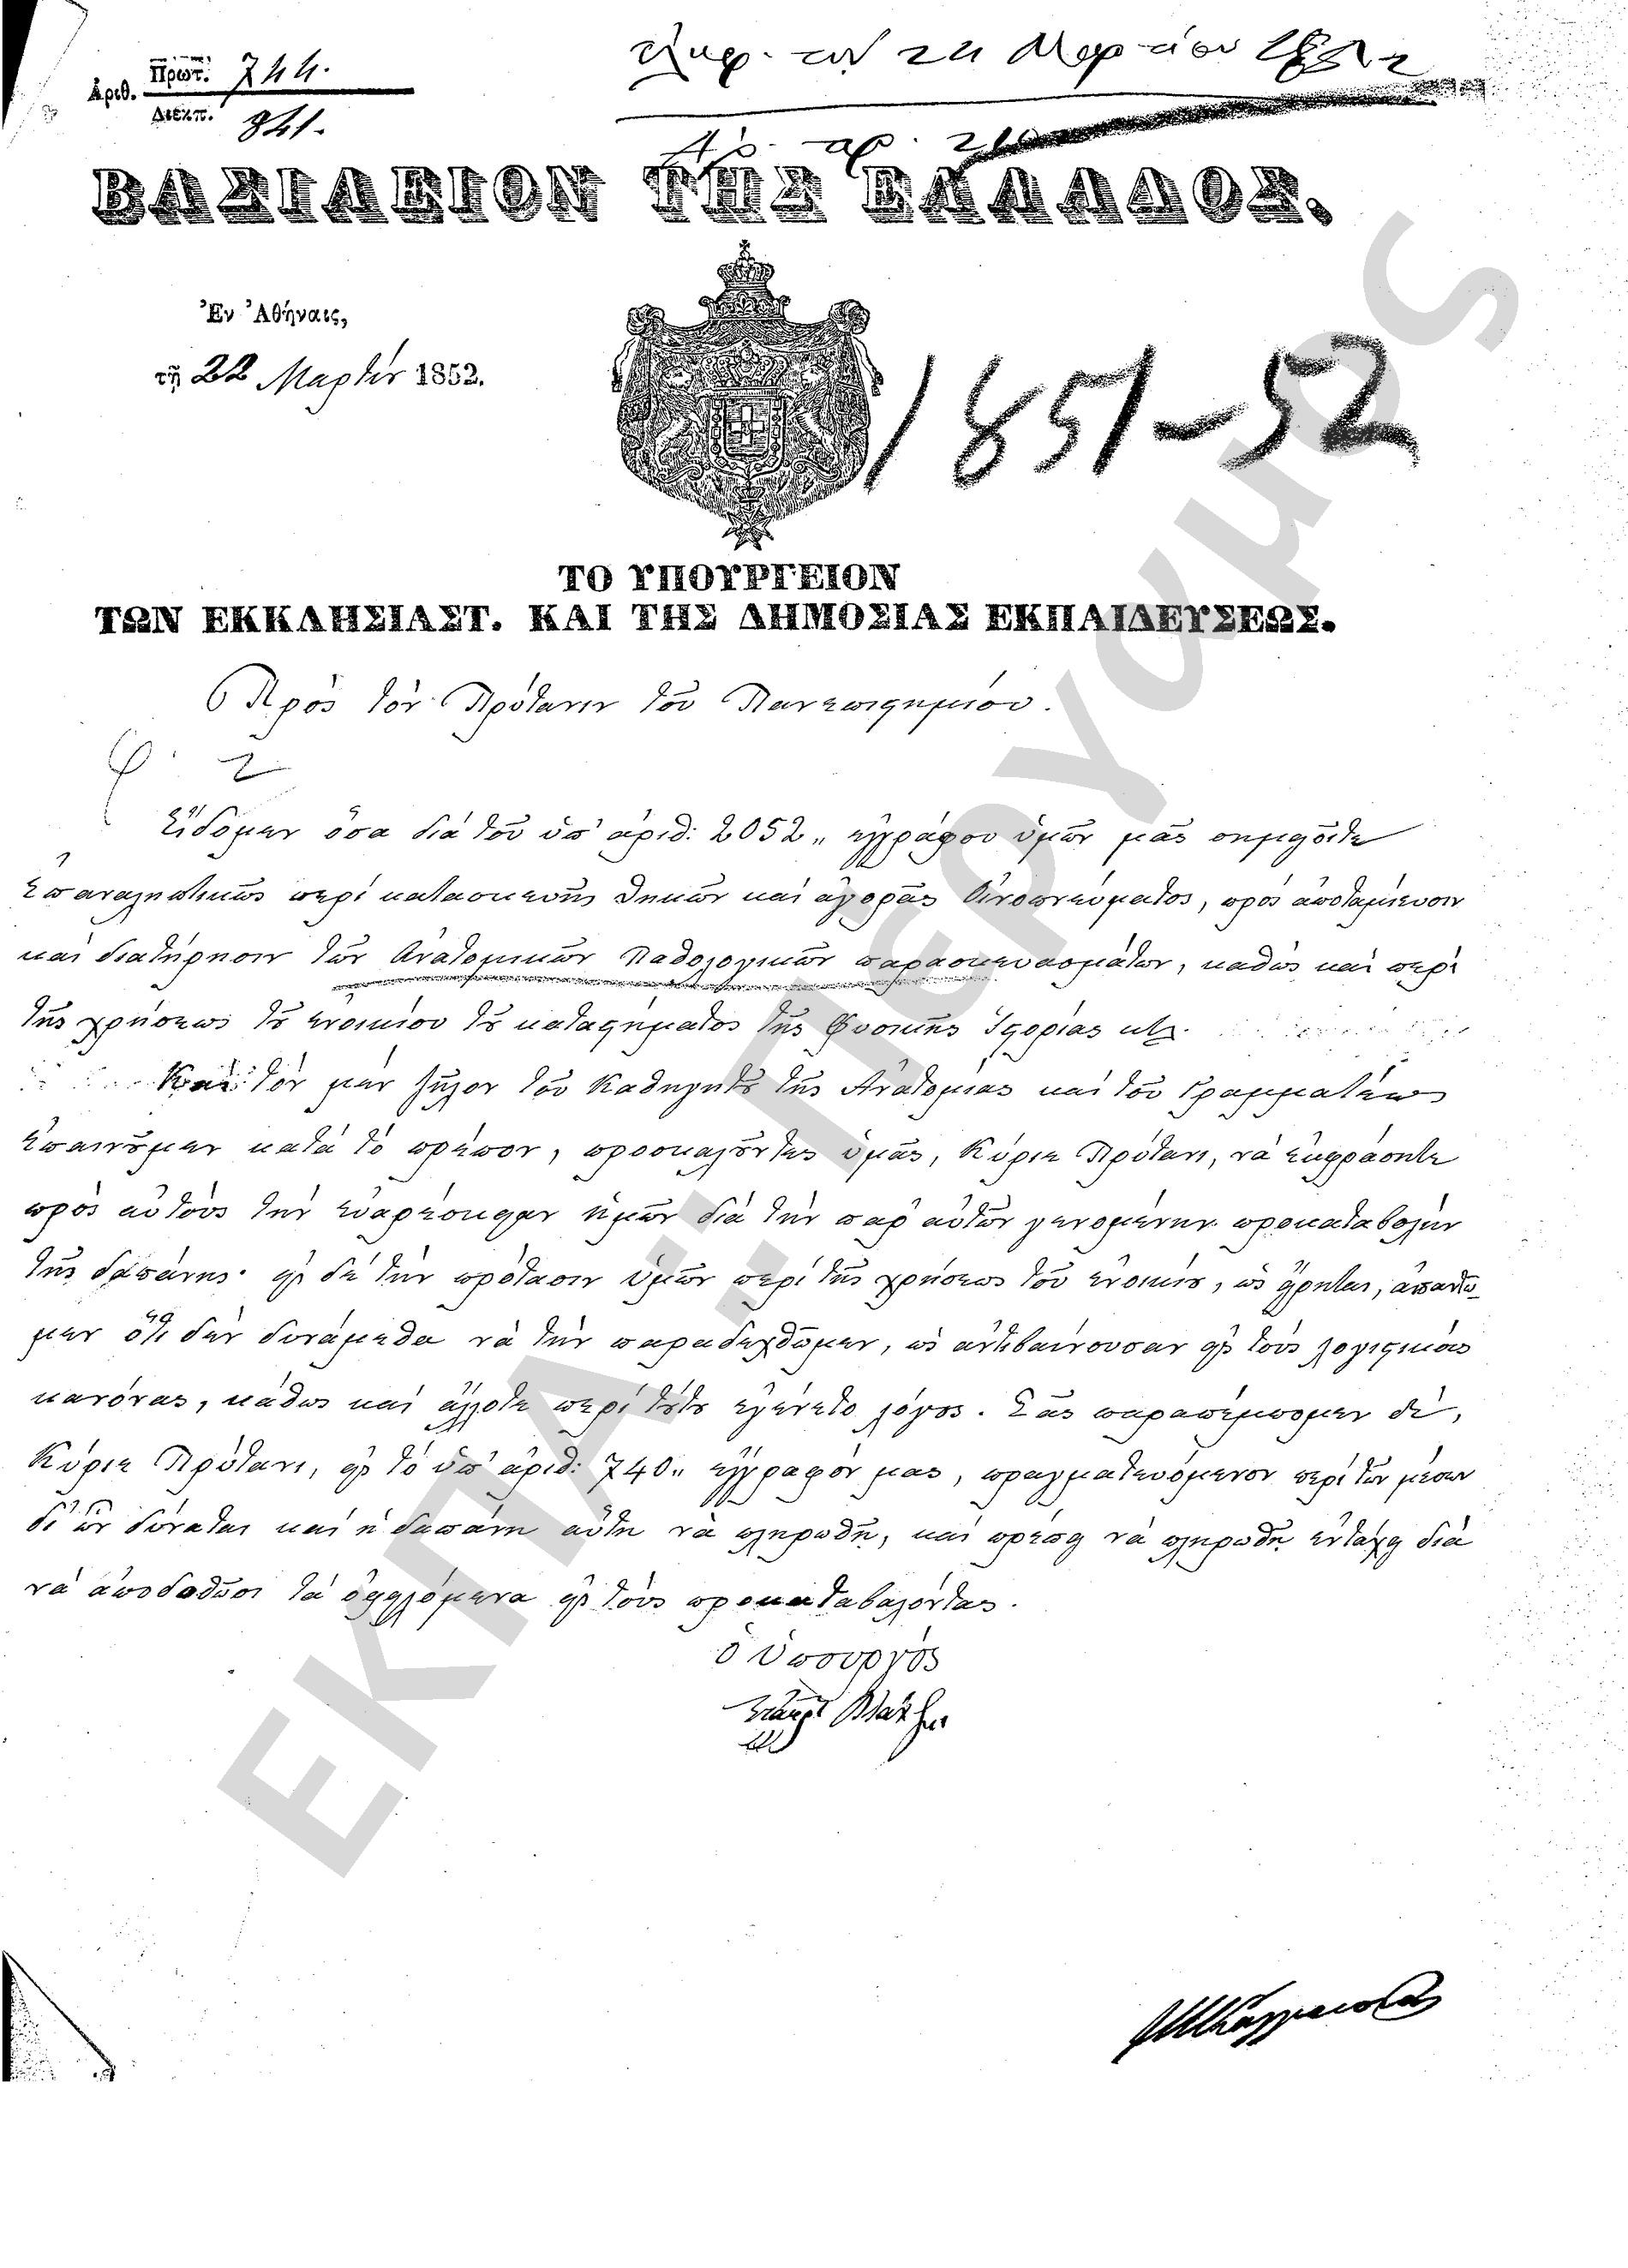 Ἀριθ. Πρωτ. 744.
Διεκπ. 841.
ἐλήφ. τὴν 24 Μαρτίου 1852
Ἀρ. πρ.
ΒΑΣΙΛΕΙΟΝ ΤΗΣ ΕΛΛΑΔΟΣ.
Ἐν Ἀθήναις,
τῇ 22 Μαρτίȣ 1852.
1851-52
ΤΟ ΥΠΟΥΡΓΕΙΟΝ
ΤΩΝ ΕΚΚΛΗΣΙΑΣΤ. ΚΑΙ ΤΗΣ ΔΗΜΟΣΙΑΣ ΕΚΠΑΙΔΕΥΣΕΩΣ.
Πρὸς τὸν Πρύτανιν τοῦ Πανεπιστημίου.
Φ. 2
Εἴδομεν ὅσα διὰ τοῦ ὑπ' ἀριθ: 2052 „ ἐγγράφου ὑμῶν μᾶς σημειοῖτε
ἐπαναληπτικῶς περὶ κατασκευῆς θηκῶν καὶ ἀγορᾶς Οἰνοπνεύματος, πρὸς ἀποταμίευσιν
καὶ διατήρησιν τῶν Ἀνατομικῶν Παθολογικῶν παρασκευασμάτων, καθὼς καὶ περὶ
τῆς χρήσεως τȣ ἐνοικίου τȣ καταστήματος τῆς Φυσικῆς Ἱστορίας κτλ.
Καὶ τὸν μὲν ζῆλον τοῦ Καθηγητȣ τῆς Ἀνατομίας καὶ τοῦ Γραμματέως
ἐπαινȣμεν κατὰ τὸ πρέπον, προσκαλȣντες ὑμᾶς, Κύριε Πρύτανι, νὰ ἐκφράσητε
πρὸς αὐτοὺς τὴν εὐαρέσκειαν ἡμῶν διὰ τὴν παρ' αὐτῶν γενομένην προκαταβολὴν
τῆς δαπάνης· εἰς δὲ τὴν πρότασιν ὑμῶν περὶ τῆς χρήσεως τοῦ ἐνοικίȣ, ὡς εἴρηται, ἀπαντῶ-
μεν ὅτι δὲν δυνάμεθα νὰ τὴν παραδεχθῶμεν, ὡς ἀντιβαίνουσαν εἰς τοὺς λογιστικοὺς
κανόνας, κάθως καὶ ἄλλοτε περὶ τȣτȣ ἐγένετο λόγος. Σᾶς παραπέμπομεν δὲ,
Κύριε Πρύτανι, εἰς τὸ ὑπ' ἀριθ: 740 „ ἔγγραφόν μας, πραγματευόμενον περὶ τῶν μέσων
δι' ὧν δύναται καὶ ἡ δαπάνη αὕτη νὰ πληρωθῇ, καὶ πρέπει νὰ πληρωθῇ ἐν τάχει διὰ
νὰ ἀποδοθῶσι τὰ ὀφειλόμενα εἰς τοὺς προκαταβαλόντας.
Ὁ Ὑπουργὸς
Σταῦρ Βλάχος
ΕΚΠΑ: ΠΕΡΓαμος